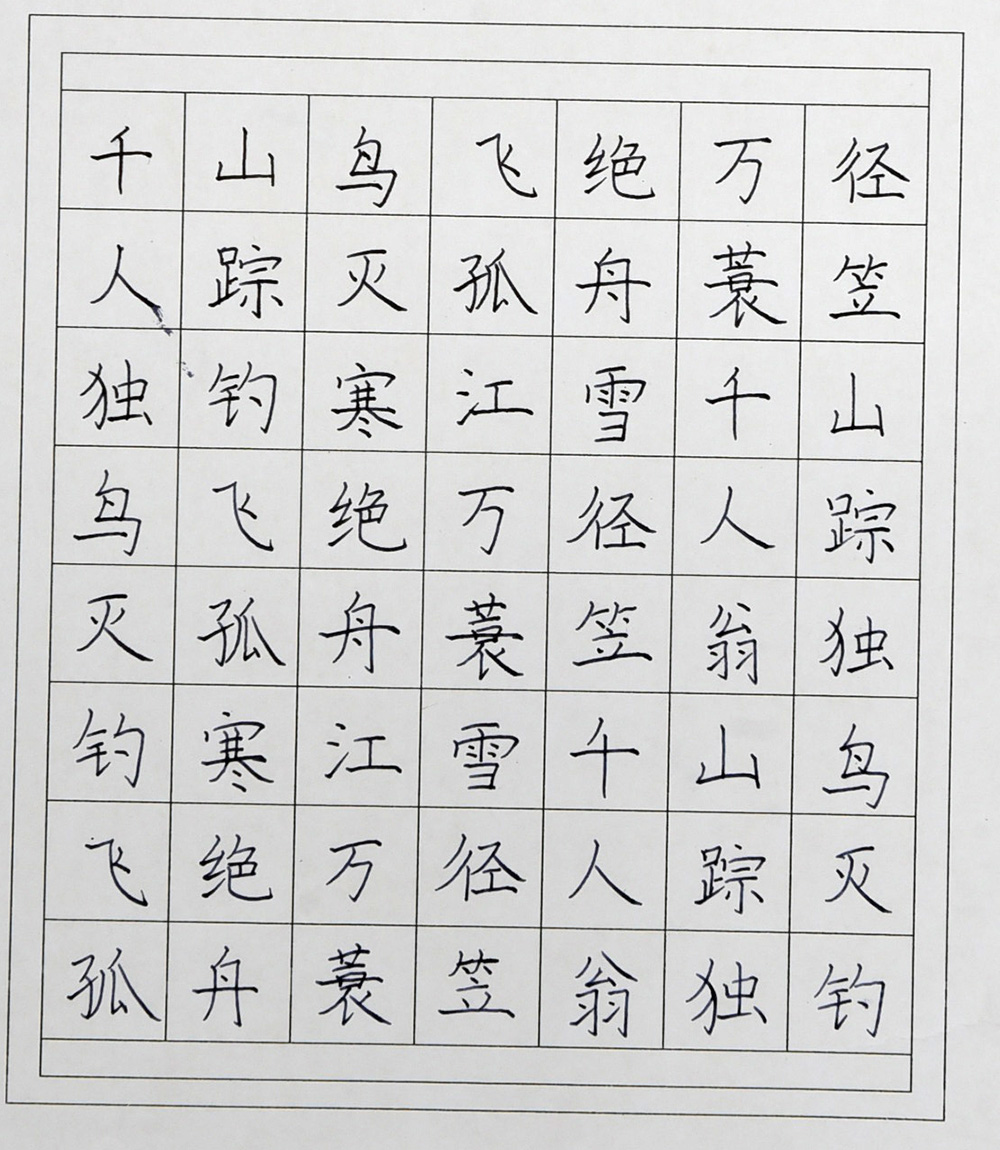 千山鸟飞绝万径
人踪灭孤舟蓑笠
独钓寒江雪千山
鸟飞绝万径人踪
灭孤舟蓑笠翁独
钓寒江雪千山鸟
飞绝万径人踪灭
孤舟蓑笠翁独钓